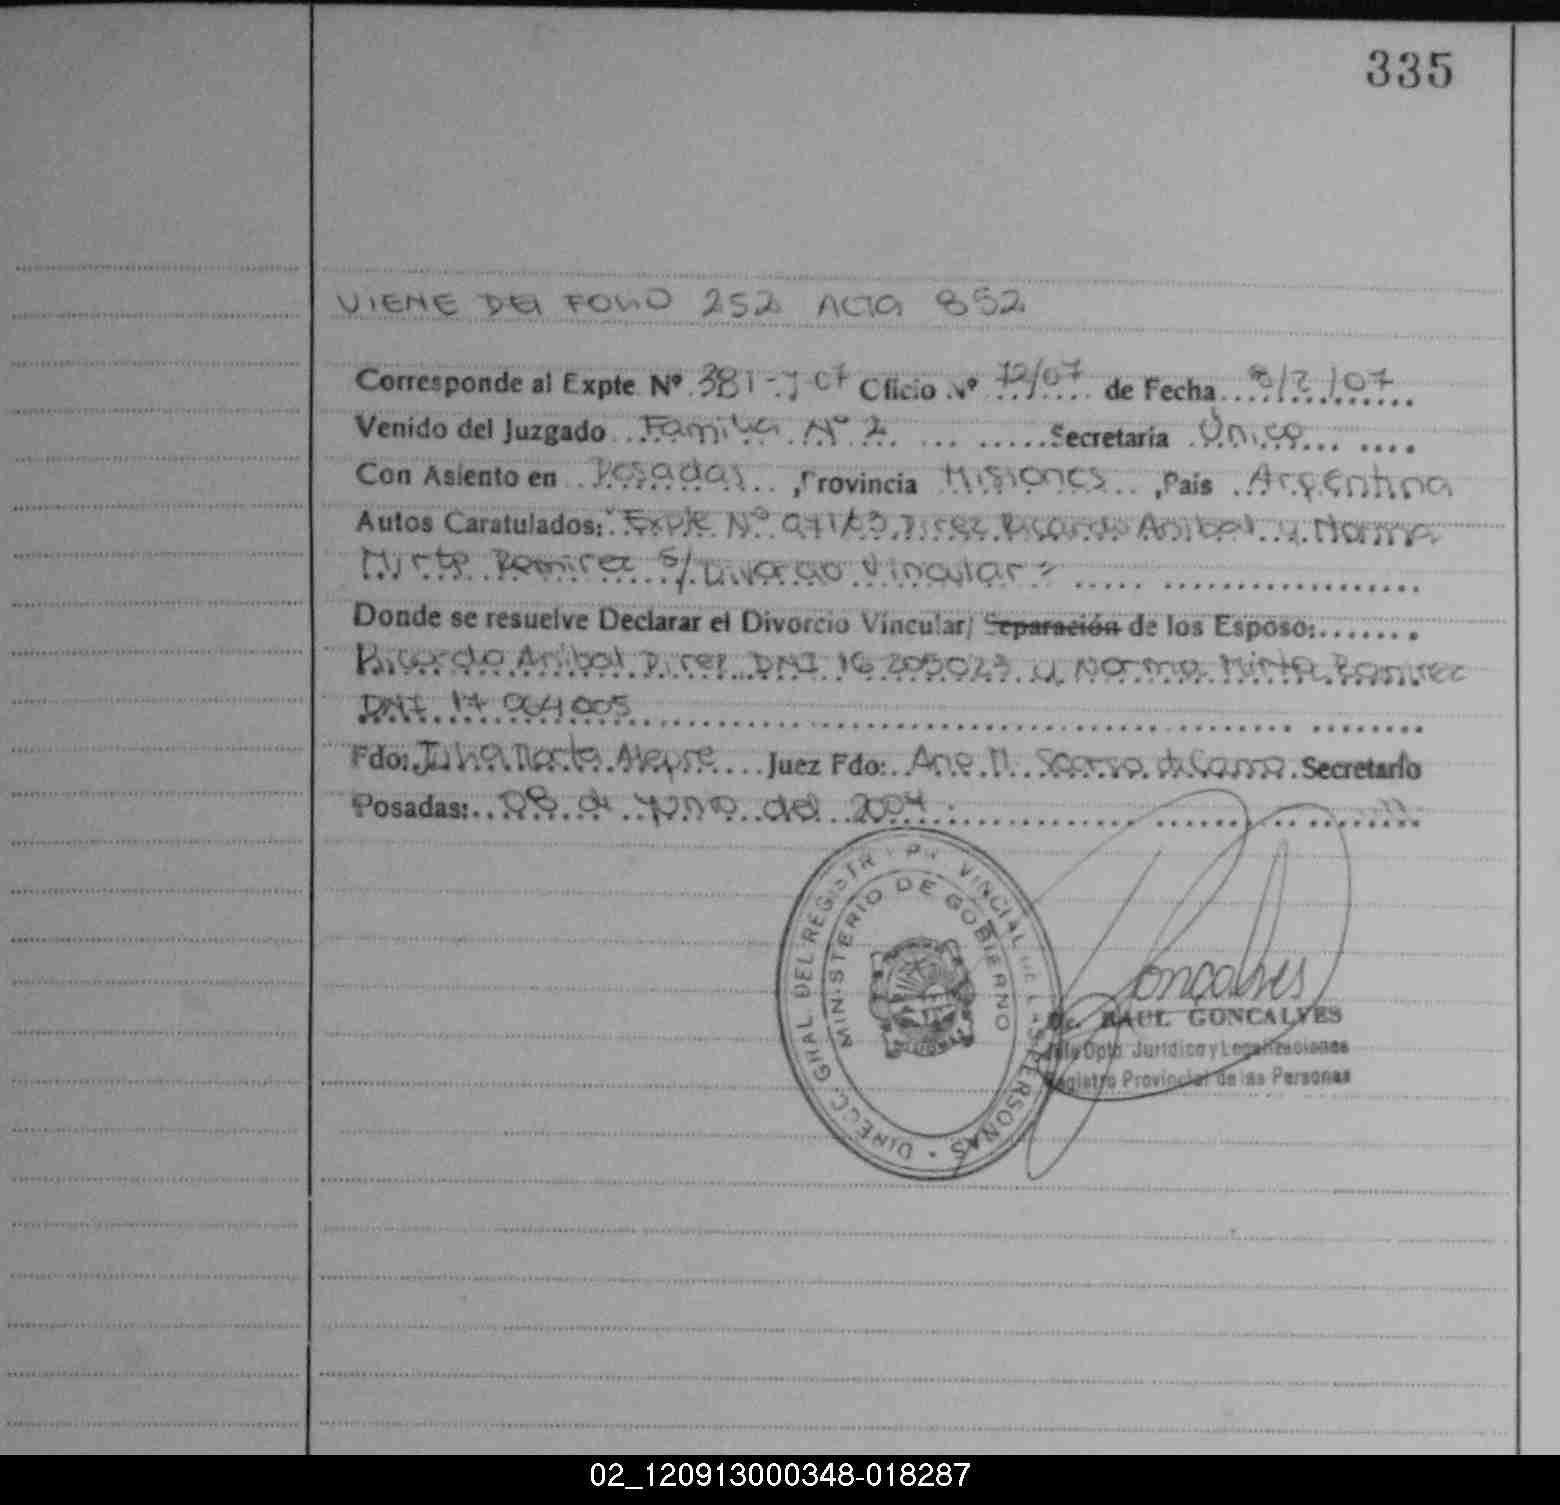 335
VIENE DEL FOLIO 252 ACTA 852
Corresponde al Expte. Nº 381-J-07 Oficio Nº 72/07 de Fecha 8/2/07
Venido del Juzgado Familia Nº 2 Secretaría Único
Con Asiento en Posadas, Provincia Misiones, País Argentina
Autos Caratulados: "Expte Nº Ricardo Anibal y Norma
Mirta Ramirez s/ Divorcio Vincular"
Donde se resuelve Declarar el Divorcio Vincular/ Separación de los Esposo:
Ricardo Anibal DNI 16 205023 y Norma Mirta Ramirez
DNI 17 064005
Fdo: Julia Marta Alegre Juez Fdo: Ana M. de Secretario
Posadas: 08 de del
DIRECC. GRAL. DEL REGISTR PR VINCIAL DE LAS PERSONAS
MINISTERIO DE GOBIERNO
MISIONES
Goncalves
Dr. RAUL GONCALVES
Jefe Dpto. Jurídico y Legalizaciones
Registro Provincial de las Personas
02_120913000348-018287